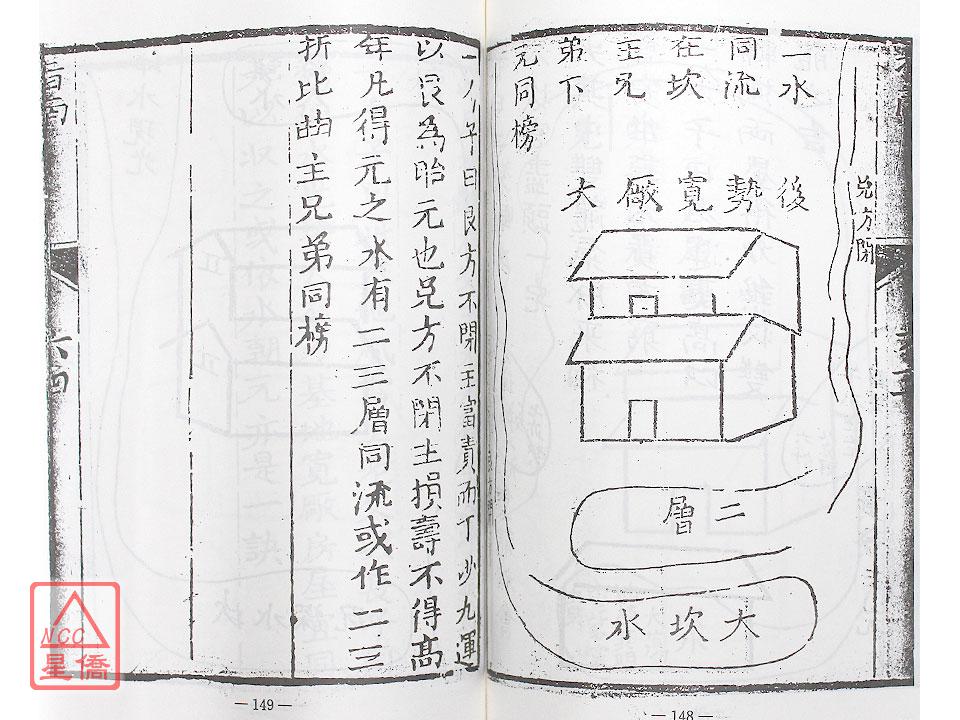 一水
同流
在坎
主兄
弟下
元同榜
後勢寬厰大
兌方閉
二層
大坎水
— 148 —
一八午日艮方不閉主富貴而丁少九運
以艮為胎元也兌方不閉主損壽不得高
年凡得元之水有二三層同流或作二三
折比曲主兄弟同榜
— 149 —
NCC
星僑